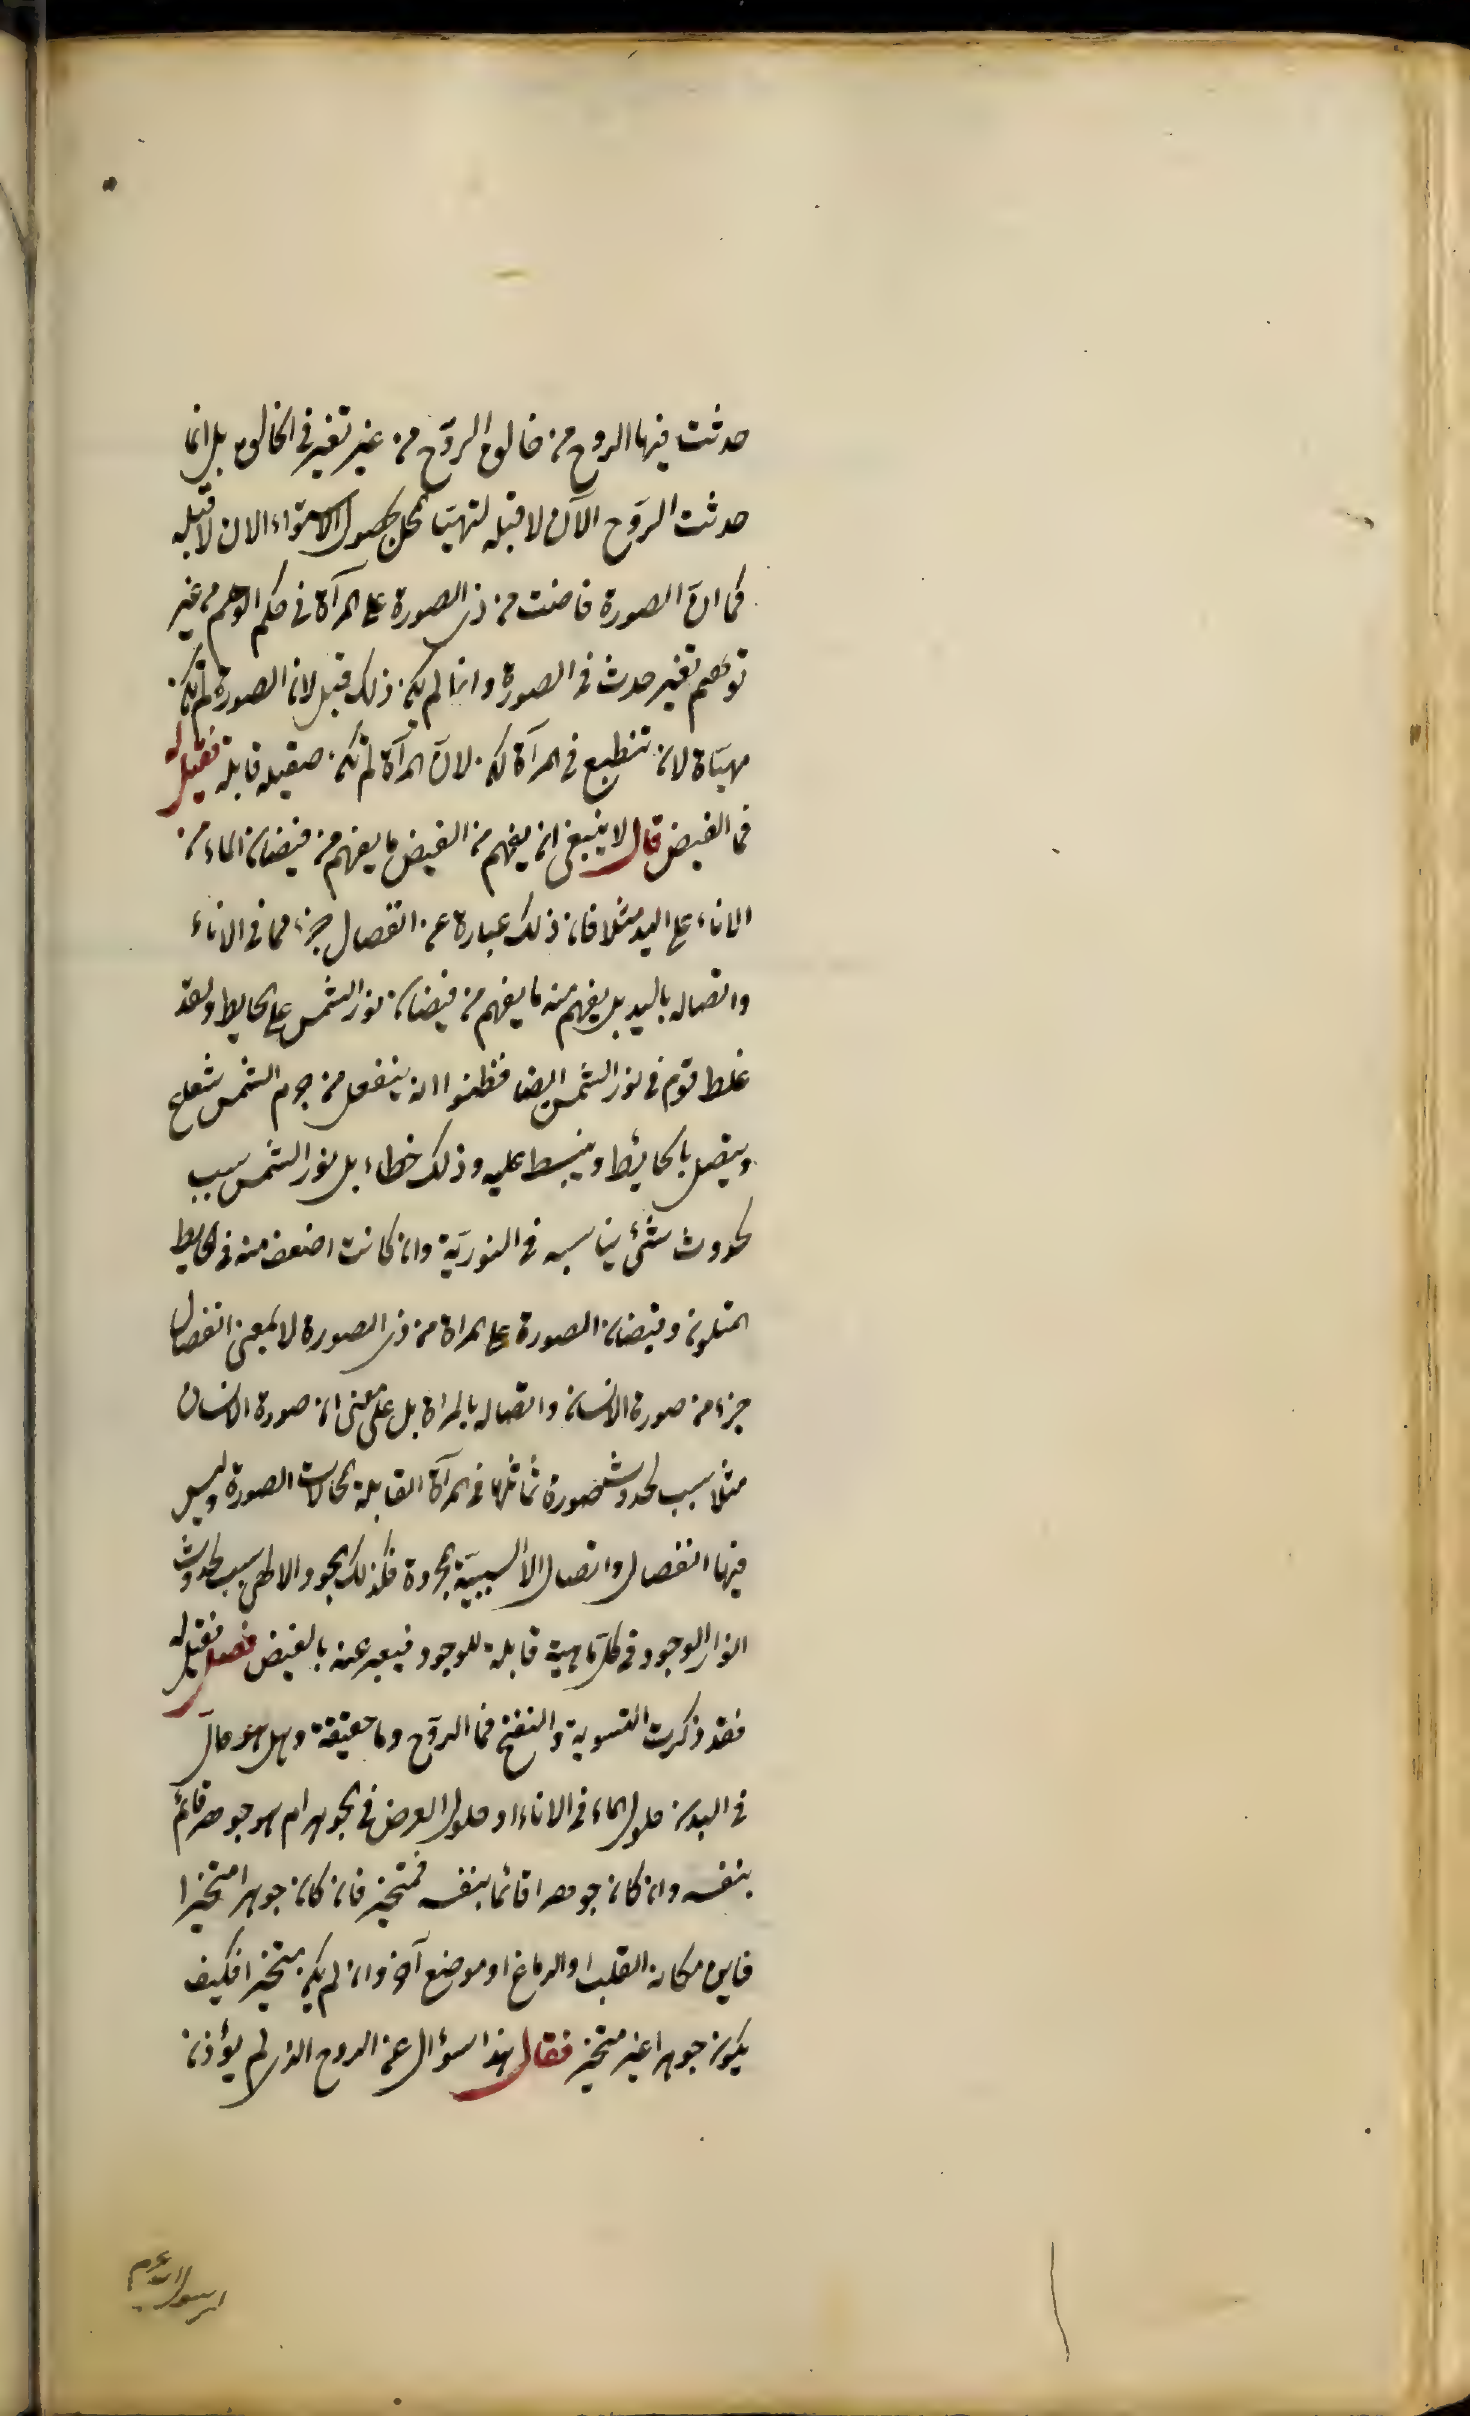 حدثت فيها الروح من خالق الروح من غير تغير في الخالق بل انما
حدثت الروح الآن لا قبله لتهيّا المحل بحصول الاستواء الان لا قبله
كما ان الصورة فاضت من ذي الصورة على المرآة في حكم الوهم من غير
توهم تغير حدث في الصورة وانما لم يكن ذلك قبل لان الصورة لم تكن
مهيّاة لان تنطبع في المرآة لكن لان المرآة لم تكن صقيله قابلة فقيل له
فما الفيض قال لا ينبغي ان يفهم من الفيض ما يفهم من فيضان الماء من
الاناء على اليد مثلا فان ذلك عبارة عن انفصال جزء مما في الاناء
واتصاله باليد بل يفهم منه ما يفهم من فيضان نور الشمس على الحايط ولقد
غلط قوم في نور الشمس ايضا فظنوا انه ينفصل من جرم الشمس شعاع
ويتصل بالحائط وينبسط عليه وذلك خطاء بل نور الشمس سبب
لحدوث شئ يناسبه في النوريّة وان كانت اضعف منه في الحايط
المتلون وفيضان الصورة على المراة من ذي الصورة لا بمعنى انفصال
جزء من صورة الانسان واتصاله بالمراة بل على معنى ان صورة الانسان
مثلا سبب لحدوث صورة تماثلها في المرآة القابلة لمحاكات الصورة وليس
فيها انفصال واتصال الا السببيّة المجردة فكذلك الجود الالهي سبب لحدوث
انوار الوجود في كل ماهية قابلة للوجود فيعبر عنه بالفيض فصل فقيل له
فقد ذكرت التسوية والنفخ فما الروح وما حقيقة وهل هو حال
في البدن حلول الماء في الاناء او حلول العرض في الجوهر ام هو جوهر قائم
بنفسه وان كان جوهرا قائما بنفسه فمتحيز فان كان جوهرا متحيزا
فاين مكانه القلب او الدماغ او موضع آخر وان لم يكن متحيزا فكيف
يكون جوهرا غير متحيز فقال هذا سؤال عن الروح الذي لم يؤذن
لرسول الله عم